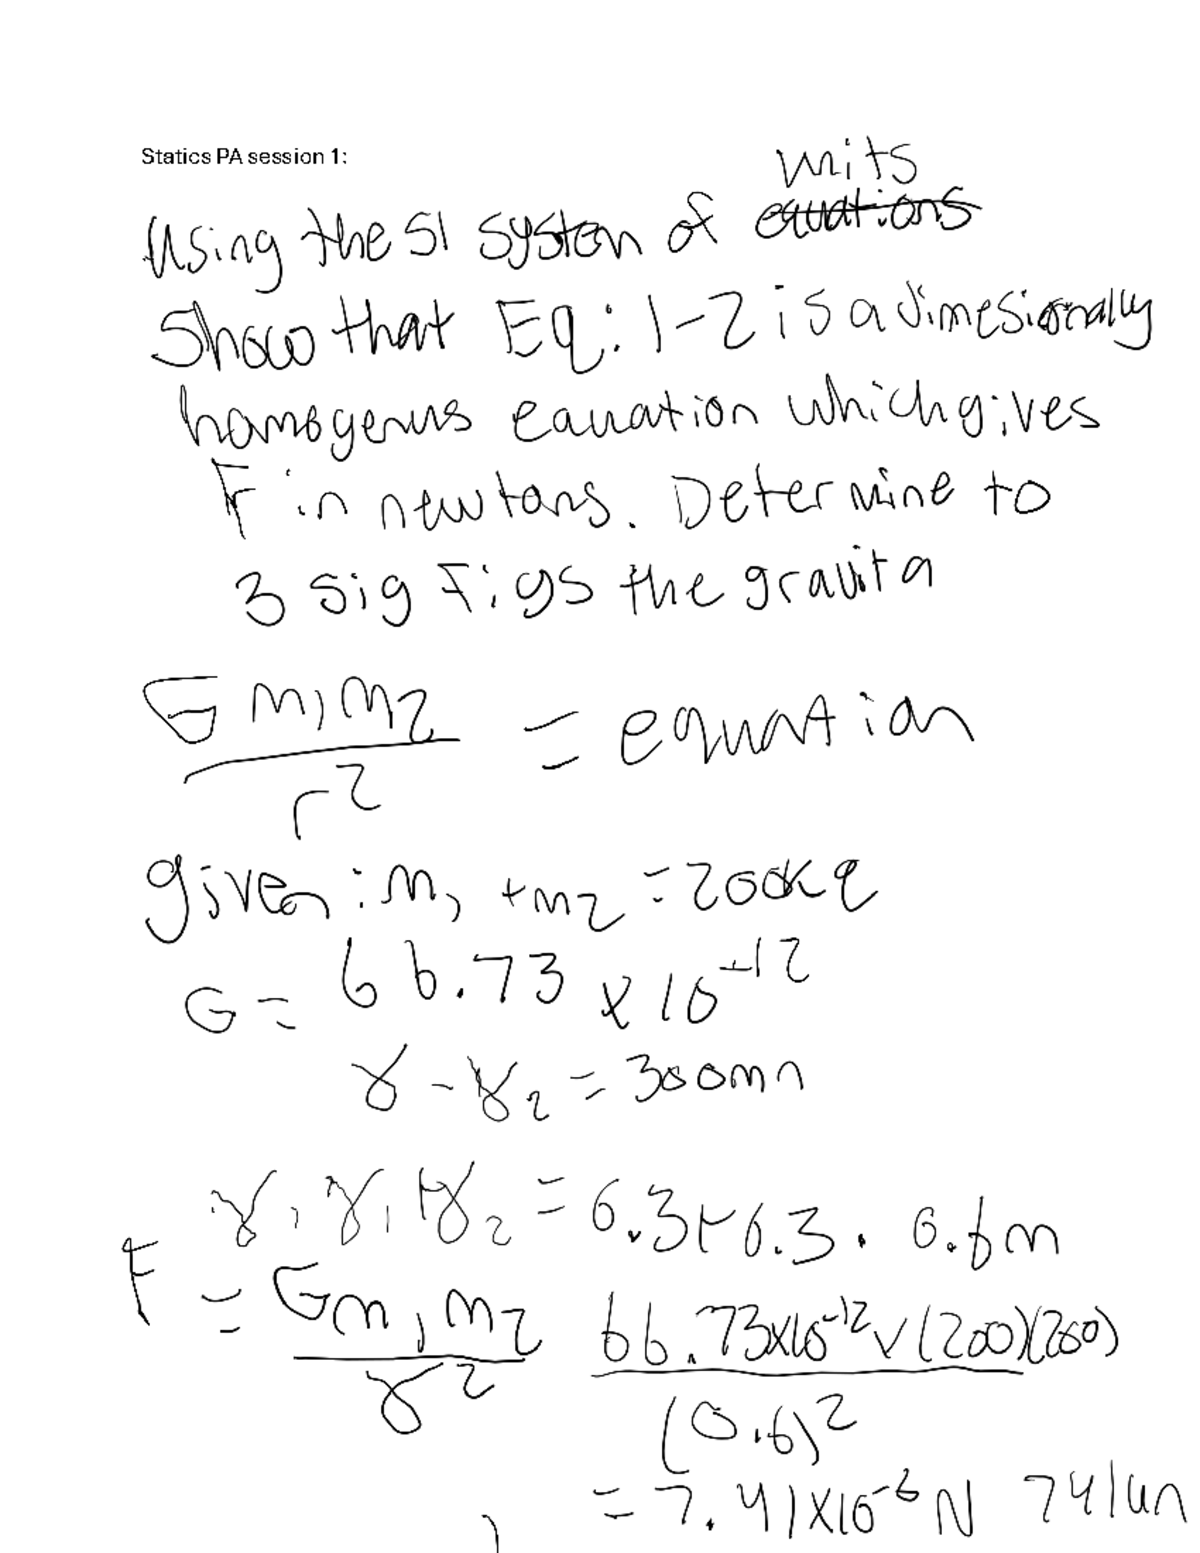 Statics PA session 1:
units
Using the SI system of equations
Show that Eq: 1-2 is a dimesionally
homogenus equation which gives
F in newtons. Determine to
3 sig Figs the gravita
G m1 m2 = equation
r2
given: m1 + m2 = 200kg
G = 66.73 x 10-12
r - r2 = 300mm
r1 r1 + r2 = 0.3 + 0.3 . 0.6m
F = Gm1 m2 66.73x10-12 x (200)(200)
r2 (0.6)2
= 7.41x10-6 N 741un